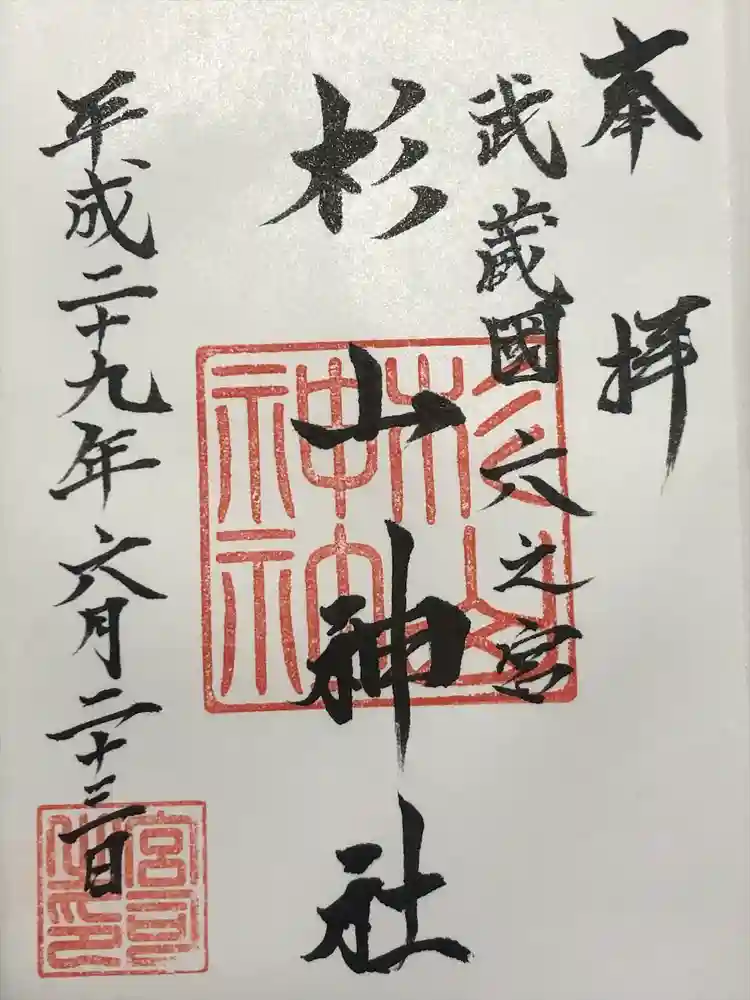 奉拝
武蔵國六之宮
杉山神社
平成二十九年六月二十三日
杉山神社
宮司之印